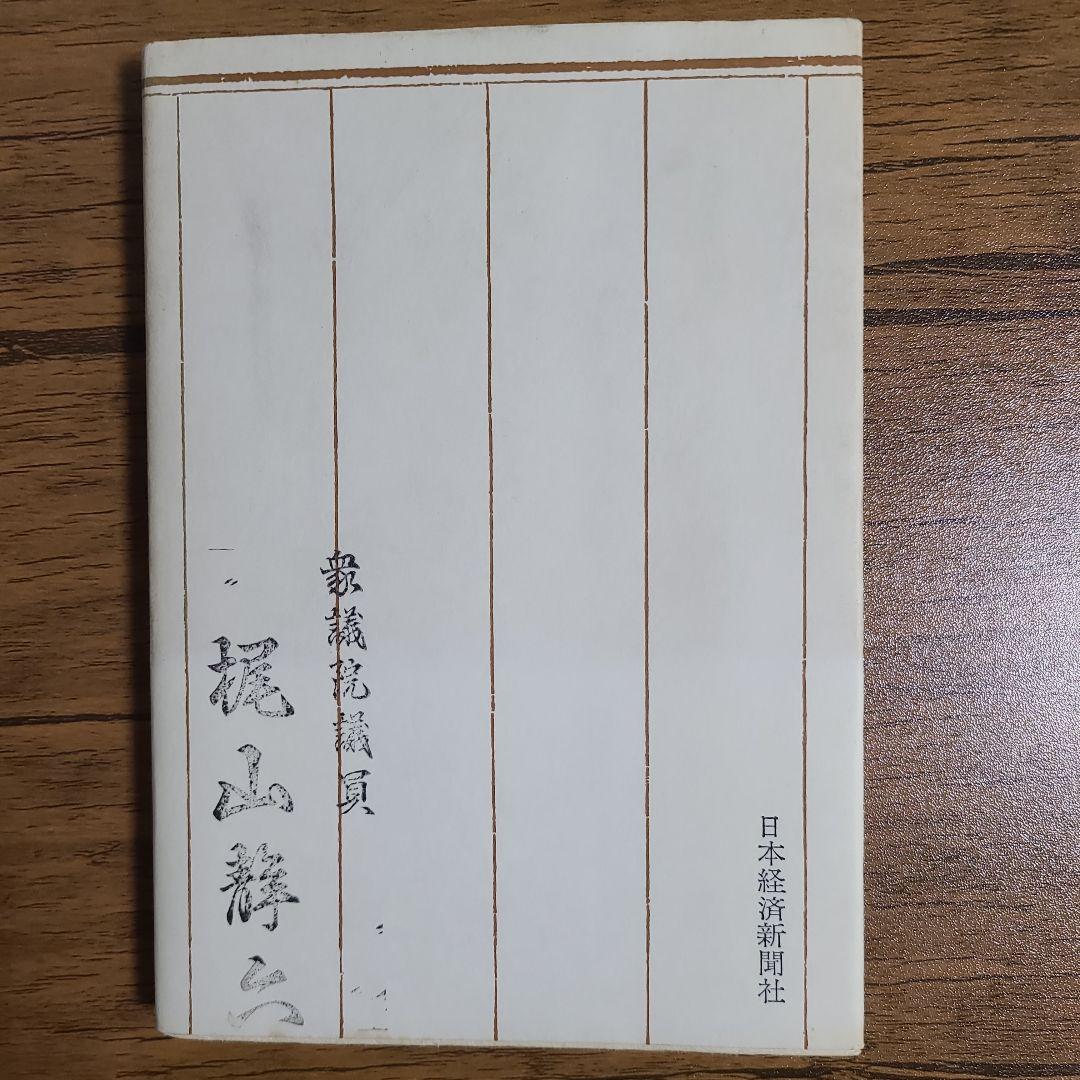 日本経済新聞社
衆議院議員
梶山静六